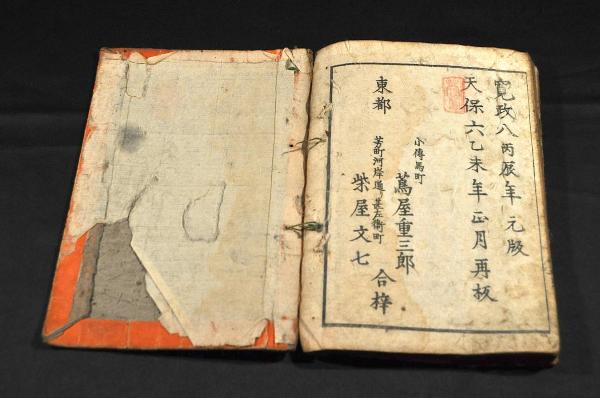 寛政八丙辰年元版
天保六乙未年正月再板
小傳馬町
蔦屋重三郎
東都
芳町河岸通り甚左衛町
柴屋文七
合梓